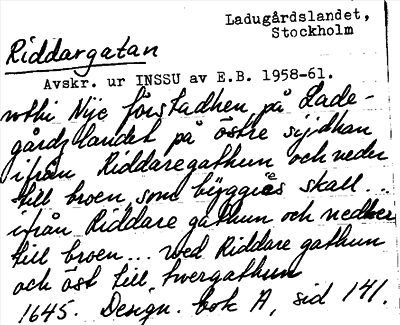 Ladugårdslandet,
Stockholm
Riddargatan
Avskr. ur INSSU av E.B. 1958-61.
uthi Nye förstadhen på Lade-
gårdzlandet på östre sijdhan
ifrån Riddaregathun och neder
till broen som byggies skall...
ifrån Riddare gathun och nedher
till broen... wed Riddare gathun
och öst till twergathun
1645. Design. bok A, sid 141.